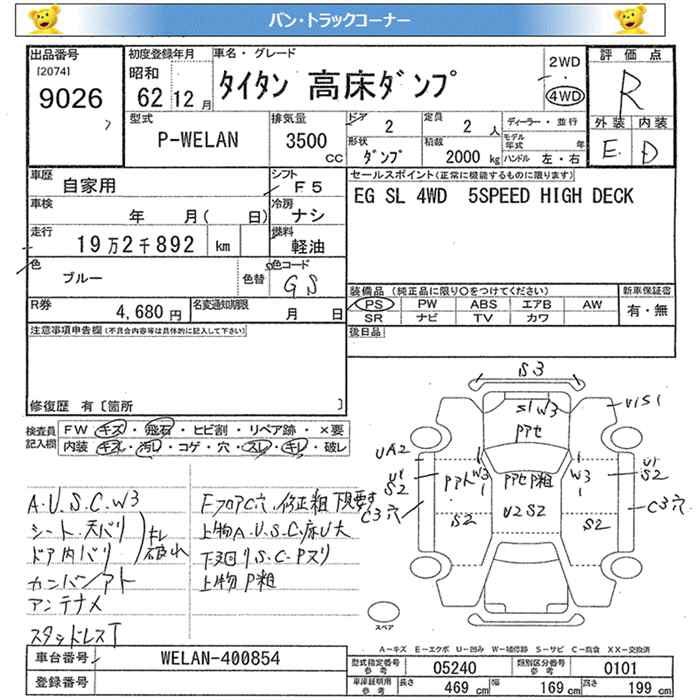 バン・トラックコーナー
出品番号
[2074]
9026
初度登録年月
昭和
62 12 月
車名・グレード
タイタン 高床ダンプ
2WD
4WD
評価点
R
外装 内装
E D
型式
P-WELAN
排気量
3500
CC
ドア
2
定員
2 人
形状
ダンプ
積載
2000 kg
ディーラー・並行
モデル年式 年
ハンドル 左・右
車歴
自家用
シフト
F5
車検
年 月( 日)
冷房
ナシ
走行
19万2千892 km
燃料
軽油
色
ブルー
色替
色コード
GS
R券
4,680 円
名変通知期限
月 日
セールスポイント(正常に機能するものに限ります)
EG SL 4WD 5SPEED HIGH DECK
装備品(純正品に限り○をつけてください)
PS PW ABS エアB AW
SR ナビ TV カワ
新車保証書
有・無
後日品
注意事項申告欄(不具合内容等は具体的に記入して下さい)
修復歴 有〔箇所 〕
検査員記入欄
FW キズ・飛石・ヒビ割・リペア跡・×要
内装 キズ・汚レ・コゲ・穴・スレ・キレ・破レ
A.U.S.C.W3
シート.天バリ
ドア内バリ
キレ破れ
カンバン/アト
アンテナメ
スタッドレスT
FフロアC穴.修正粗 下見要す
上物A.U.S.C.床U大
下回りS.C.Pヌリ
上物P粗
S3
S1 W3
Pアセ
U1S1
UA2
U1
S2
C3穴
Pアト
W3
1
PアセP粗
W3
1
U1
S2
C3穴
S2
U2 S2
S2
スペア
A-キズ E-エクボ U-凹み W-補修跡 S-サビ C-腐食 XX-交換済
車台番号
WELAN-400854
登録番号
型式指定番号
参考
05240
類別区分番号
参考
0101
車庫証明用
参考
長さ 469 cm
幅 169 cm
高さ 199 cm